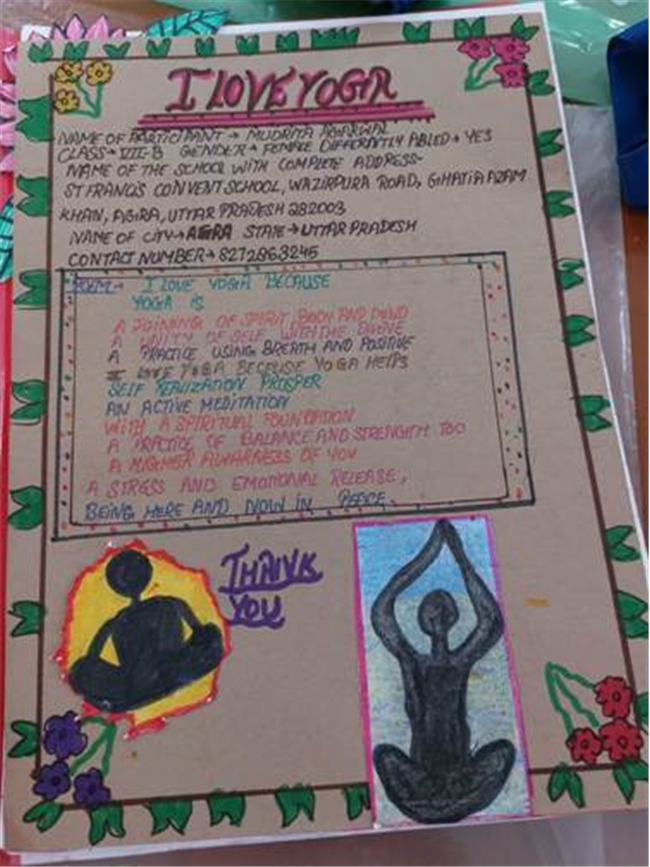 I LOVE YOGA
NAME OF PARTICIPANT → MUDRIYA AGARWAL
CLASS → VIII-B GENDER → FEMALE DIFFERENTLY ABLED → YES
NAME OF THE SCHOOL WITH COMPLETE ADDRESS-
ST FRANCIS CONVENT SCHOOL, WAZIRPURA ROAD, GHATIA AZAM
KHAN, AGRA, UTTAR PRADESH 282003
NAME OF CITY → AGRA STATE → UTTAR PRADESH
CONTACT NUMBER → 8272863245
POEM → I LOVE YOGA BECAUSE
YOGA IS
A JOINING OF SPIRIT, BODY AND MIND
A UNITY OF SELF WITH THE DIVINE
A PRACTICE USING BREATH AND POSITIVE
I LOVE YOGA BECAUSE YOGA HELPS
SELF REALIZATION PROSPER
AN ACTIVE MEDITATION
WITH A SPIRITUAL FOUNDATION
A PRACTICE OF BALANCE AND STRENGTH TOO
A HIGHER AWARNESS OF YOU
A STRESS AND EMOTIONAL RELEASE,
BEING HERE AND NOW IN PEACE.
THANK
YOU